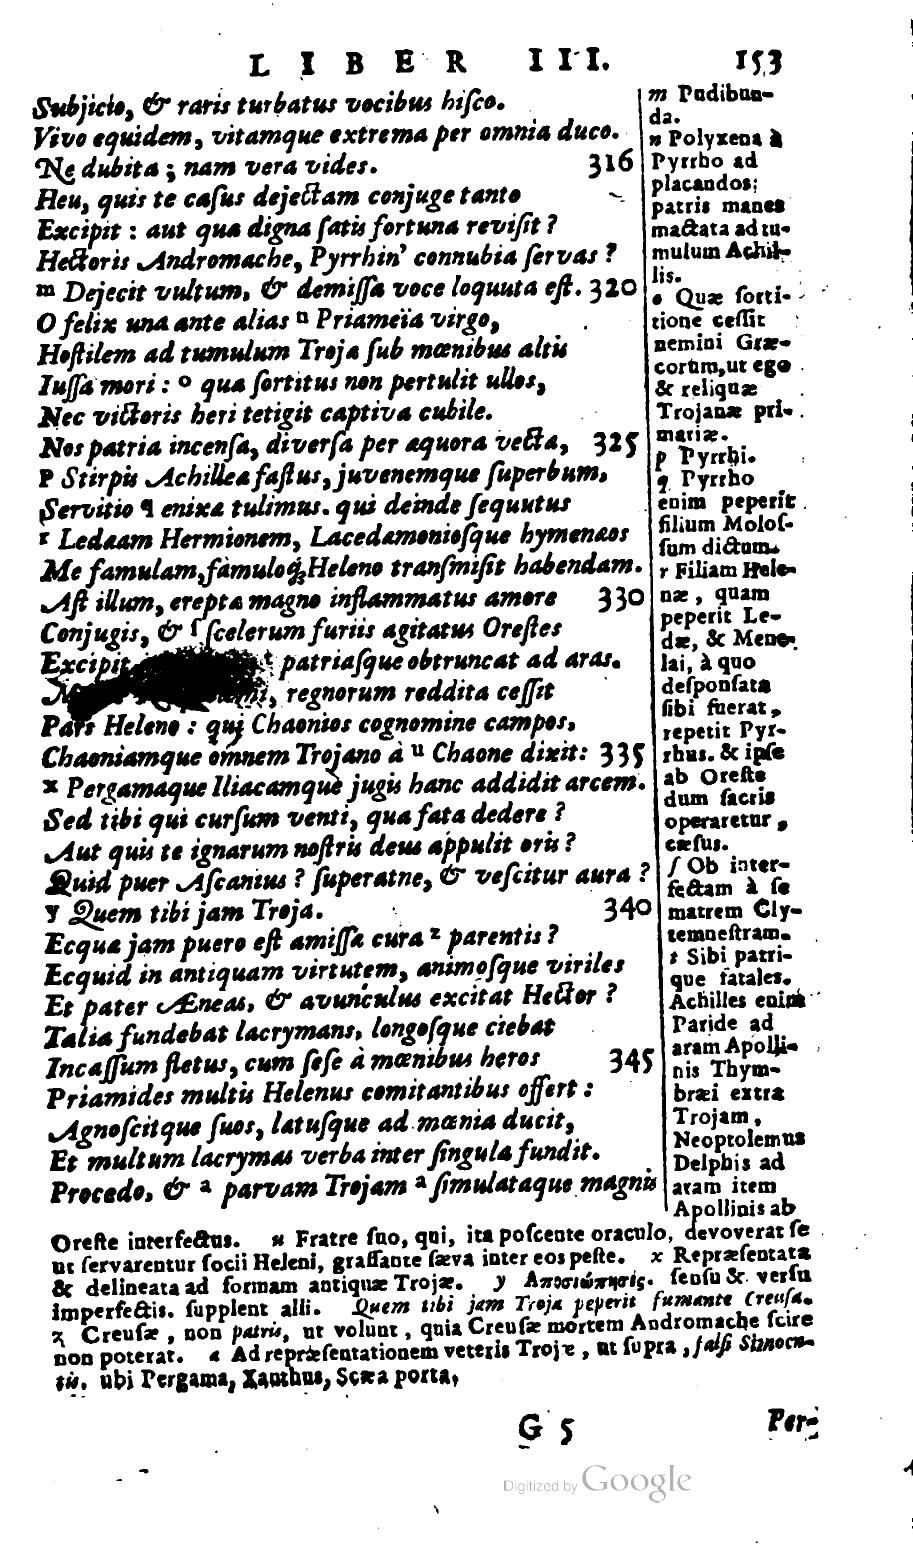 LIBER III. 153
Subjicio, & raris turbatus vocibus hisco.
Vivo equidem, vitamque extrema per omnia duco.
Ne dubita; nam vera vides. 316
Heu, quis te casus dejectam conjuge tanto
Excipit: aut qua digna satis fortuna revisit?
Hectoris Andromache, Pyrrhin' connubia servas?
m Dejecit vultum, & demissa voce loquuta est. 320
O felix una ante alias n Priameïa virgo,
Hostilem ad tumulum Troja sub mœnibus altis
Iussa mori: o qua sortitus non pertulit ullos,
Nec victoris heri tetigit captiva cubile.
Nos patria incensa, diversa per aquora vecta, 325
p Stirpis Achillea fastus, juvenemque superbum,
Servitio q enixa tulimus. qui deinde sequutus
r Ledaam Hermionem, Lacedamoniosque hymenaos
Me famulam, famuloq; Heleno transmisit habendam.
Ast illum, erepta magno inflammatus amore 330
Conjugis, & s scelerum furiis agitatus Orestes
Excipit t patriasque obtruncat ad aras.
regnorum reddita cessit
Pars Heleno: qui Chaonios cognomine campos,
Chaoniamque omnem Trojano à u Chaone dixit: 335
x Pergamaque Iliacamque jugis hanc addidit arcem.
Sed tibi qui cursum venti, qua fata dedere?
Aut quis te ignarum nostris deus appulit oris?
Quid puer Ascanius? superatne, & vescitur aura?
y Quem tibi jam Troja. 340
Ecqua jam puero est amissa cura z parentis?
Ecquid in antiquam virtutem, animosque viriles
Et pater Æneas, & avunculus excitat Hector?
Talia fundebat lacrymans, longosque ciebat
Incassum fletus, cum sese à mœnibus heros 345
Priamides multis Helenus comitantibus offert:
Agnoscitque suos, latusque ad mœnia ducit,
Et multum lacrymas verba inter singula fundit.
Procedo, & a parvam Trojam a simulataque magnis
m Pudibun-
da.
n Polyxena à
Pyrrho ad
placandos;
patris manes
mactata ad tu-
mulum Achil-
lis.
o Quæ sorti-
tione cessit
nemini Græ-
corum, ut ego
& reliquæ
Trojanæ pri-
mariæ.
p Pyrrhi.
q Pyrrho
enim peperit
filium Molos-
sum dictum.
r Filiam Hele-
næ, quam
peperit Le-
dæ, & Mene-
lai, à quo
desponsata
sibi fuerat,
repetit Pyr-
rhus. & ipse
ab Oreste
dum sacris
operaretur,
cæsus.
s Ob inter-
fectam à se
matrem Cly-
temnestram.
t Sibi patri-
que fatales.
Achilles enim
Paride ad
aram Apolli-
nis Thym-
bræi extra
Trojam,
Neoptolemus
Delphis ad
aram item
Apollinis ab
Oreste interfectus. u Fratre suo, qui, ita poscente oraculo, devoverat se
ut servarentur socii Heleni, grassante sæva inter eos peste. x Repræsentata
& delineata ad formam antiquæ Trojæ. y Αποσιώπησις. sensu & versu
imperfectis. supplent alii. Quem tibi jam Troja peperit fumante Creusa.
z Creusæ, non patris, ut volunt, quia Creusæ mortem Andromache scire
non poterat. a Ad repræsentationem veteris Trojæ, ut supra, falsi Simoen-
tis. ubi Pergama, Xanthus, Scæa porta,
G 5 Per-
Digitized by Google